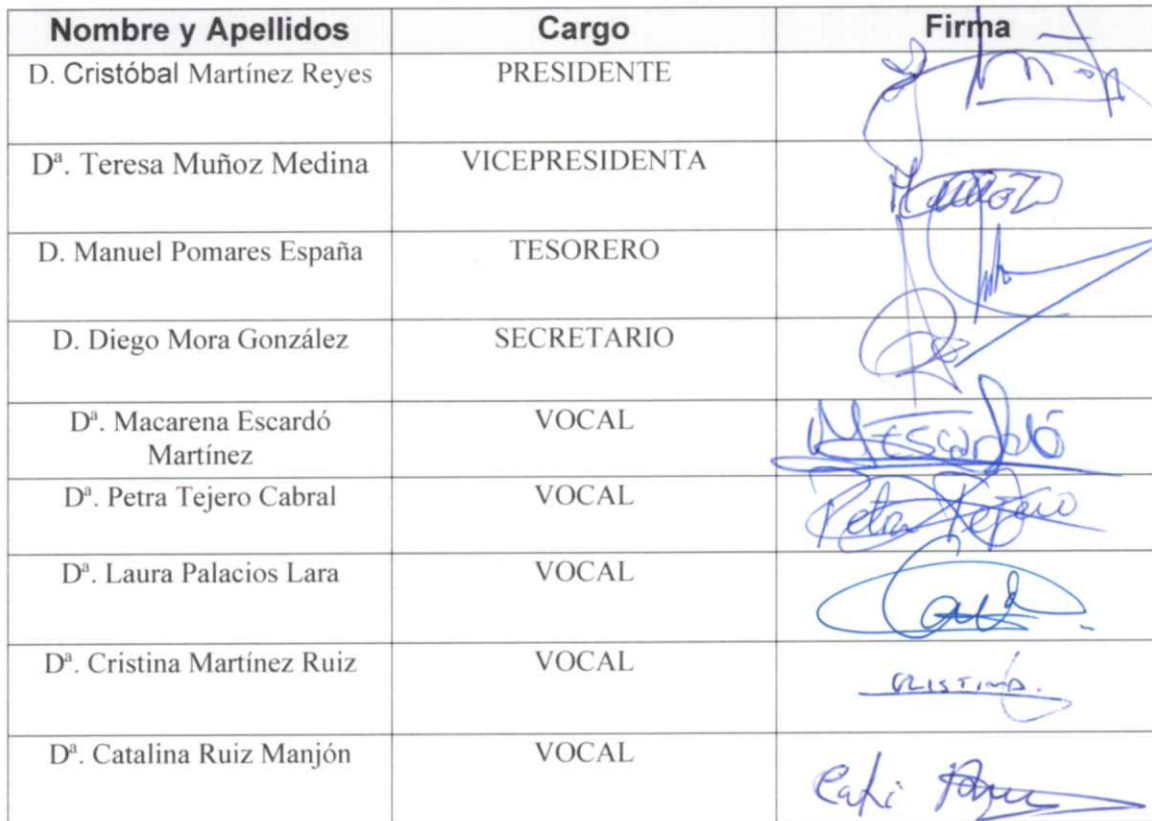 Nombre y Apellidos Cargo Firma
D. Cristóbal Martínez Reyes PRESIDENTE
Dª. Teresa Muñoz Medina VICEPRESIDENTA Muñoz
D. Manuel Pomares España TESORERO
D. Diego Mora González SECRETARIO
Dª. Macarena Escardó VOCAL MEscardó
Martínez
Dª. Petra Tejero Cabral VOCAL Petra Tejero
Dª. Laura Palacios Lara VOCAL
Dª. Cristina Martínez Ruiz VOCAL CRISTINA.
Dª. Catalina Ruiz Manjón VOCAL Cati